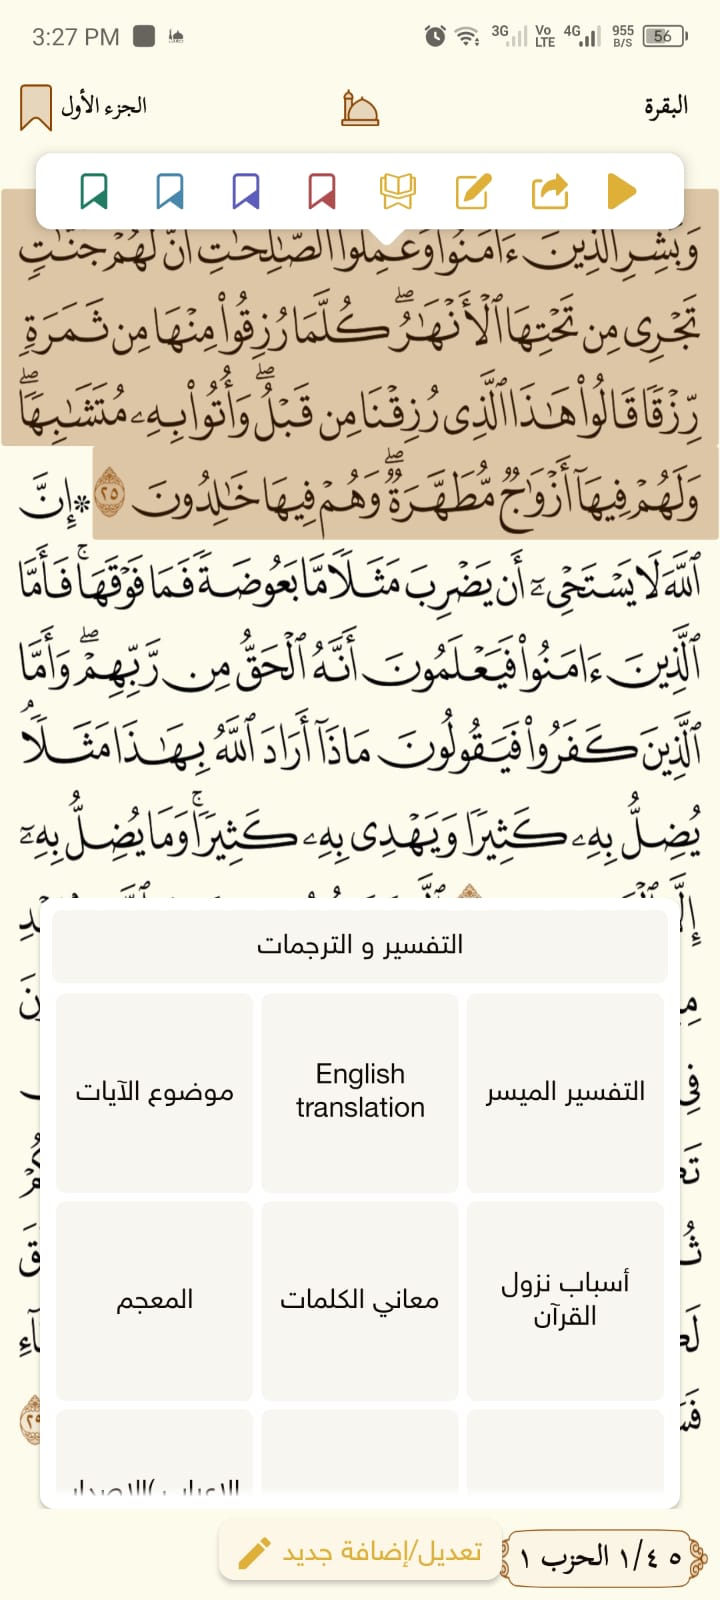 3:27 PM
3G Vo LTE 4G 955 B/S 56
البقرة
الجزء الأول
وَبَشِّرِ ٱلَّذِينَ ءَامَنُوا۟ وَعَمِلُوا۟ ٱلصَّٰلِحَٰتِ أَنَّ لَهُمْ جَنَّٰتٍ
تَجْرِى مِن تَحْتِهَا ٱلْأَنْهَٰرُ ۖ كُلَّمَا رُزِقُوا۟ مِنْهَا مِن ثَمَرَةٍ
رِّزْقًا قَالُوا۟ هَٰذَا ٱلَّذِى رُزِقْنَا مِن قَبْلُ ۖ وَأُتُوا۟ بِهِۦ مُتَشَٰبِهًا ۖ
وَلَهُمْ فِيهَآ أَزْوَٰجٌ مُّطَهَّرَةٌ ۖ وَهُمْ فِيهَا خَٰلِدُونَ ٢٥ * إِنَّ
ٱللَّهَ لَا يَسْتَحْىِۦٓ أَن يَضْرِبَ مَثَلًا مَّا بَعُوضَةً فَمَا فَوْقَهَا ۚ فَأَمَّا
ٱلَّذِينَ ءَامَنُوا۟ فَيَعْلَمُونَ أَنَّهُ ٱلْحَقُّ مِن رَّبِّهِمْ ۖ وَأَمَّا
ٱلَّذِينَ كَفَرُوا۟ فَيَقُولُونَ مَاذَآ أَرَادَ ٱللَّهُ بِهَٰذَا مَثَلًا ۘ
يُضِلُّ بِهِۦ كَثِيرًا وَيَهْدِى بِهِۦ كَثِيرًا ۚ وَمَا يُضِلُّ بِهِۦٓ
التفسير و الترجمات
التفسير الميسر
English translation
موضوع الآيات
أسباب نزول القرآن
معاني الكلمات
المعجم
تعديل/إضافة جديد
٥ ١/٤ الحزب ١